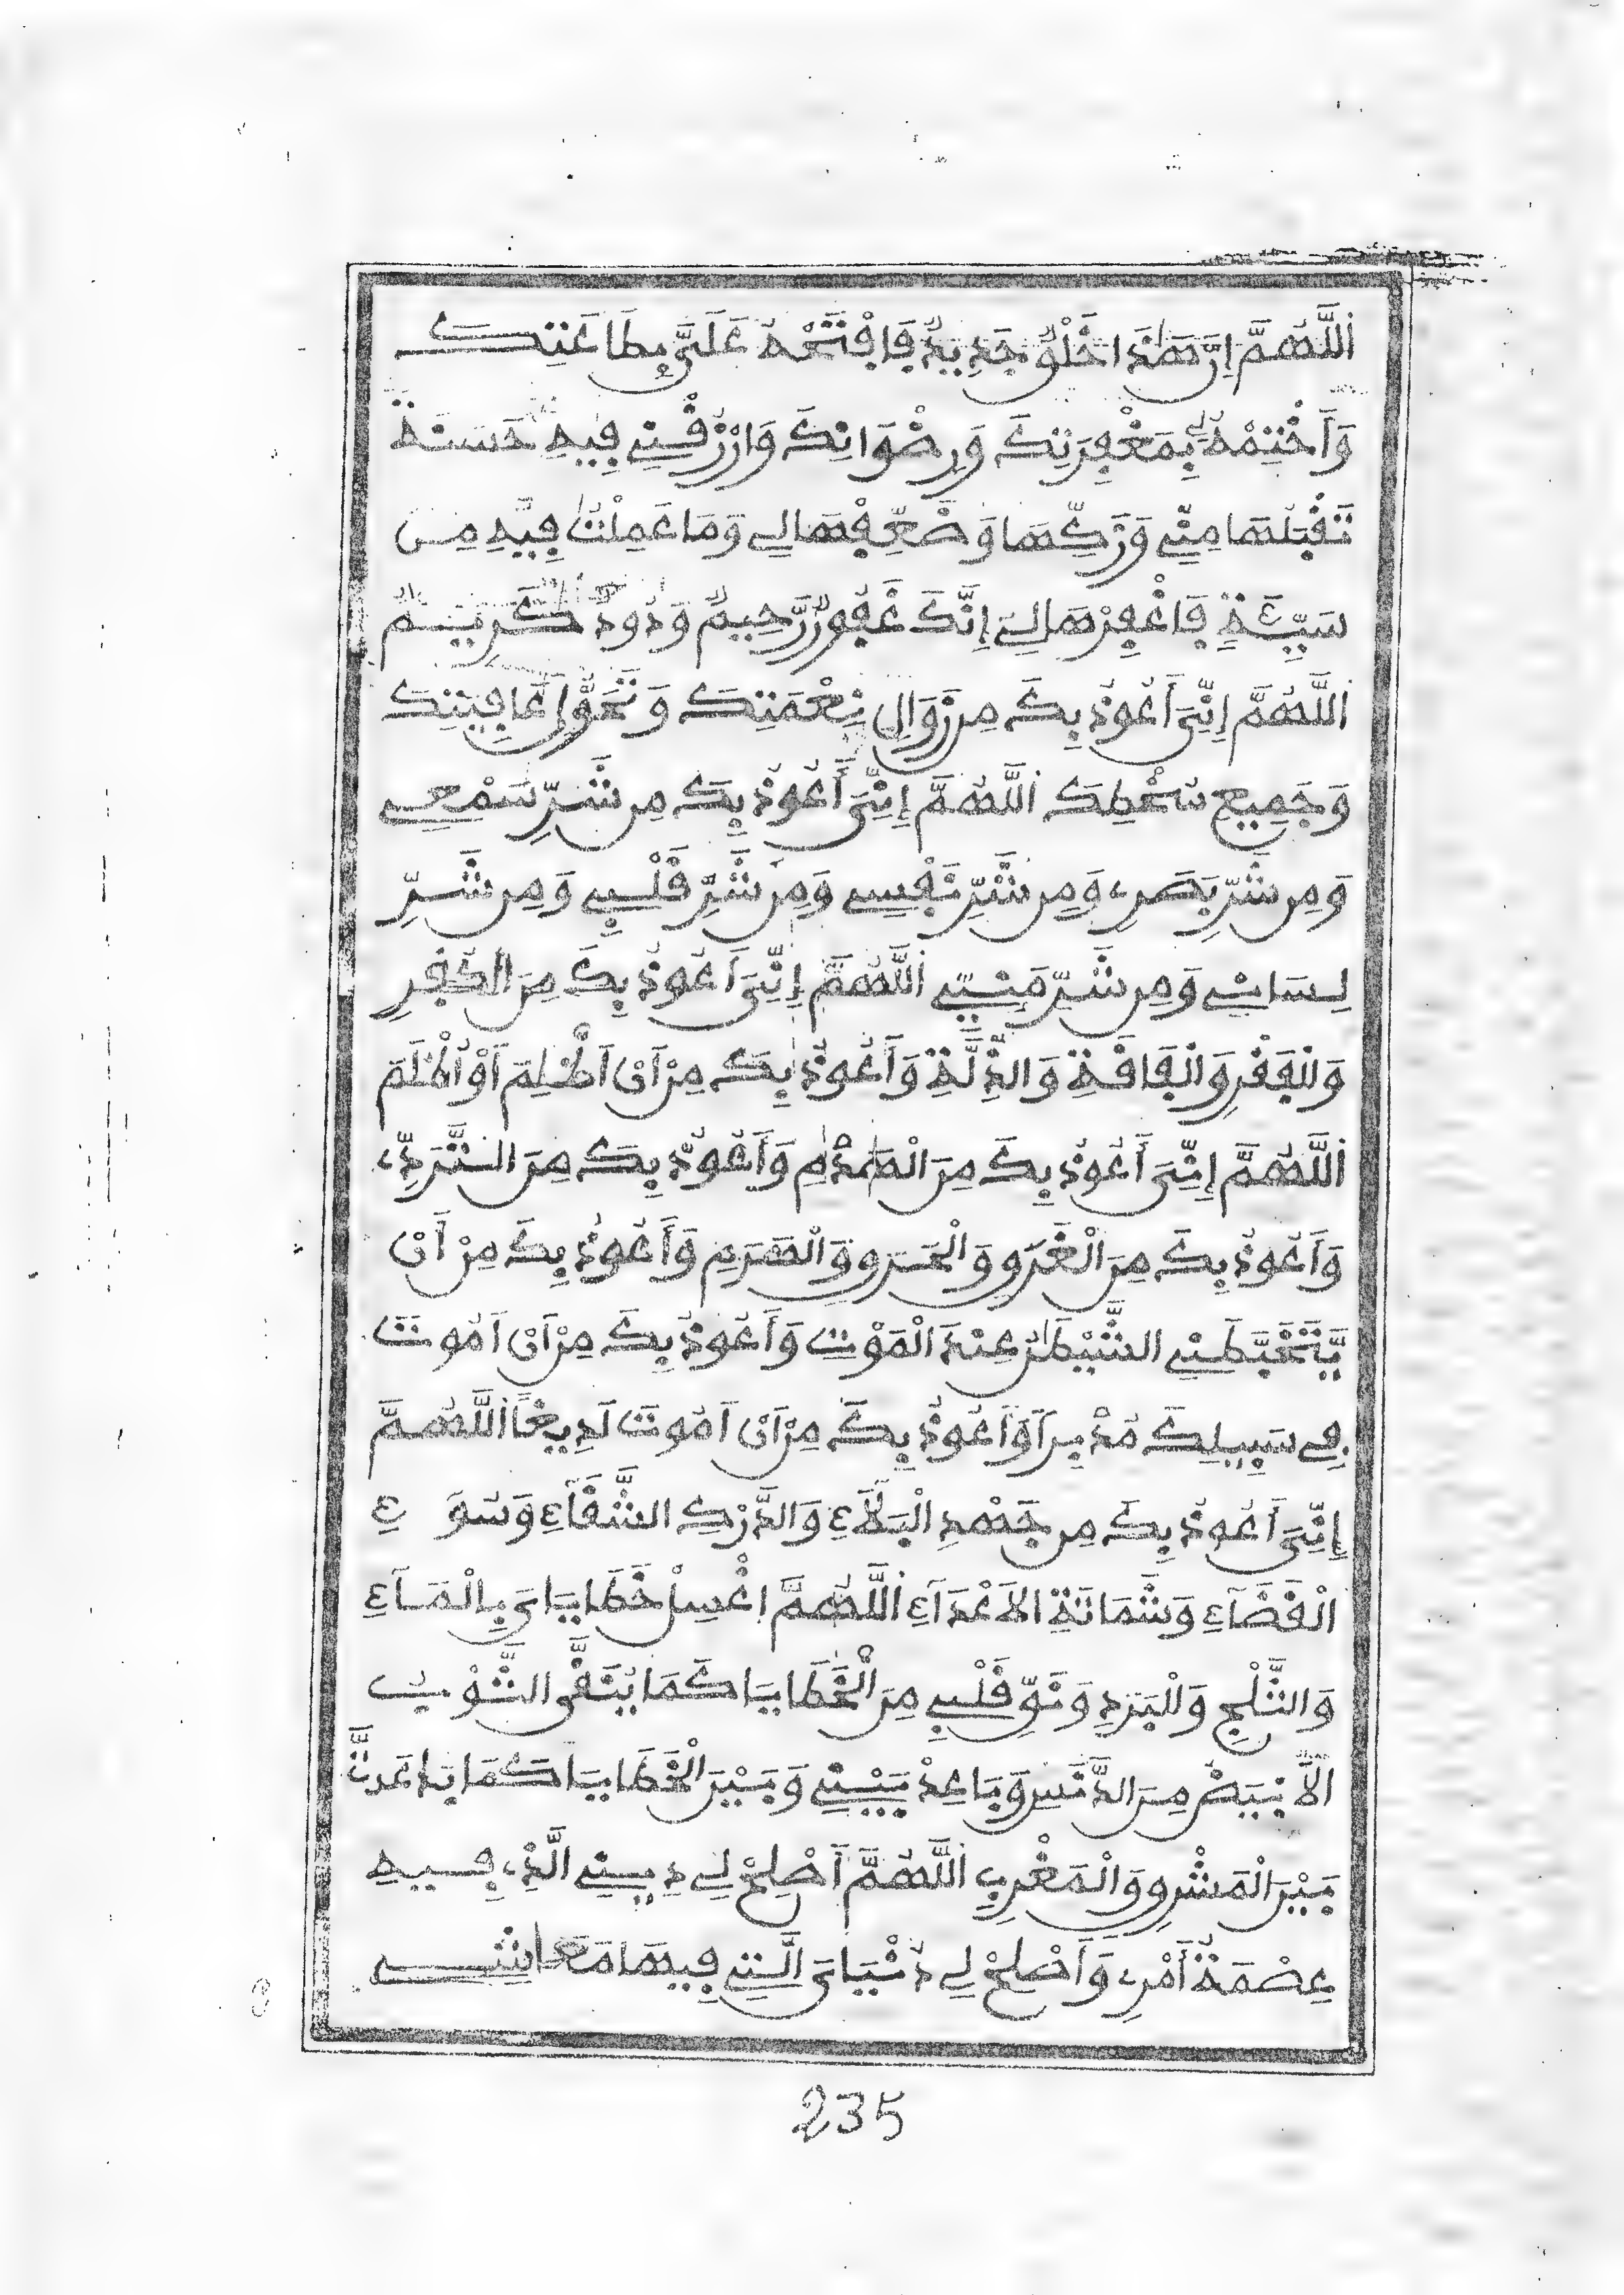 اَللَّهُمَّ إِنَّ هَٰذَا خَلْقٌ جَدِيدٌ فَافْتَحْهُ عَلَيَّ بِطَاعَتِكَ
وَأَخْتِمْهُ لِي بِمَغْفِرَتِكَ وَرِضْوَانِكَ وَارْزُقْنِي فِيهِ حَسَنَةً
تَقْبَلُهَا مِنِّي وَزَكِّهَا وَضَعِّفْهَا لِي وَمَا عَمِلْتُ فِيهِ مِن
سَيِّئَةٍ فَاغْفِرْهَا لِي إِنَّكَ غَفُورٌ رَّحِيمٌ وَدُودٌ كَرِيمٌ
اَللَّهُمَّ إِنِّي أَعُوذُ بِكَ مِن زَوَالِ نِعْمَتِكَ وَتَحَوُّلِ عَافِيَتِكَ
وَجَمِيعِ سَخْطِكَ اَللَّهُمَّ إِنِّي أَعُوذُ بِكَ مِن شَرِّ سَمْعِي
وَمِن شَرِّ بَصَرِي وَمِن شَرِّ نَفْسِي وَمِن شَرِّ قَلْبِي وَمِن شَرِّ
لِسَانِي وَمِن شَرِّ مَنِيِّي اَللَّهُمَّ إِنِّي أَعُوذُ بِكَ مِنَ الْكُفْرِ
وَالْفَقْرِ وَالْفَاقَةِ وَالذِّلَّةِ وَأَعُوذُ بِكَ مِنْ أَنْ أَظْلِمَ أَوْ أُظْلَمَ
اَللَّهُمَّ إِنِّي أَعُوذُ بِكَ مِنَ الْهَدْمِ وَأَعُوذُ بِكَ مِنَ التَّرَدِّي
وَأَعُوذُ بِكَ مِنَ الْغَرَقِ وَالْحَرَقِ وَالْهَرَمِ وَأَعُوذُ بِكَ مِنْ أَنْ
يَّتَخَبَّطَنِي الشَّيْطَٰنُ عِنْدَ الْمَوْتِ وَأَعُوذُ بِكَ مِنْ أَنْ أَمُوتَ
فِي سَبِيلِكَ مُدْبِراً وَأَعُوذُ بِكَ مِنْ أَنْ أَمُوتَ لَدِيغاً اَللَّهُمَّ
إِنِّي أَعُوذُ بِكَ مِن جَهْدِ الْبَلَآءِ وَالدَّرْكِ الشَّقَآءِ وَسُوَءِ
الْقَضَآءِ وَشَمَاتَةِ الاَعْدَآءِ اَللَّهُمَّ اغْسِلْ خَطَايَايَ بِالْمَآءِ
وَالثَّلْجِ وَلْبَرَدِ وَنَقِّ قَلْبِي مِنَ الْخَطَايَا كَمَا يُنَقَّى الثَّوْبُ
الاَبْيَضُ مِنَ الدَّنَسِ وَبَاعِدْ بَيْنِي وَبَيْنَ الْخَطَايَا كَمَا بَاعَدتَّ
بَيْنَ الْمَشْرِقِ وَالْمَغْرِبِ اَللَّهُمَّ أَصْلِحْ لِي دِينِي الَّذِي فِيهِ
عِصْمَةُ أَمْرِي وَأَصْلِحْ لِي دُنْيَايَ الَّتِي فِيهَا مَعَاشِي
235